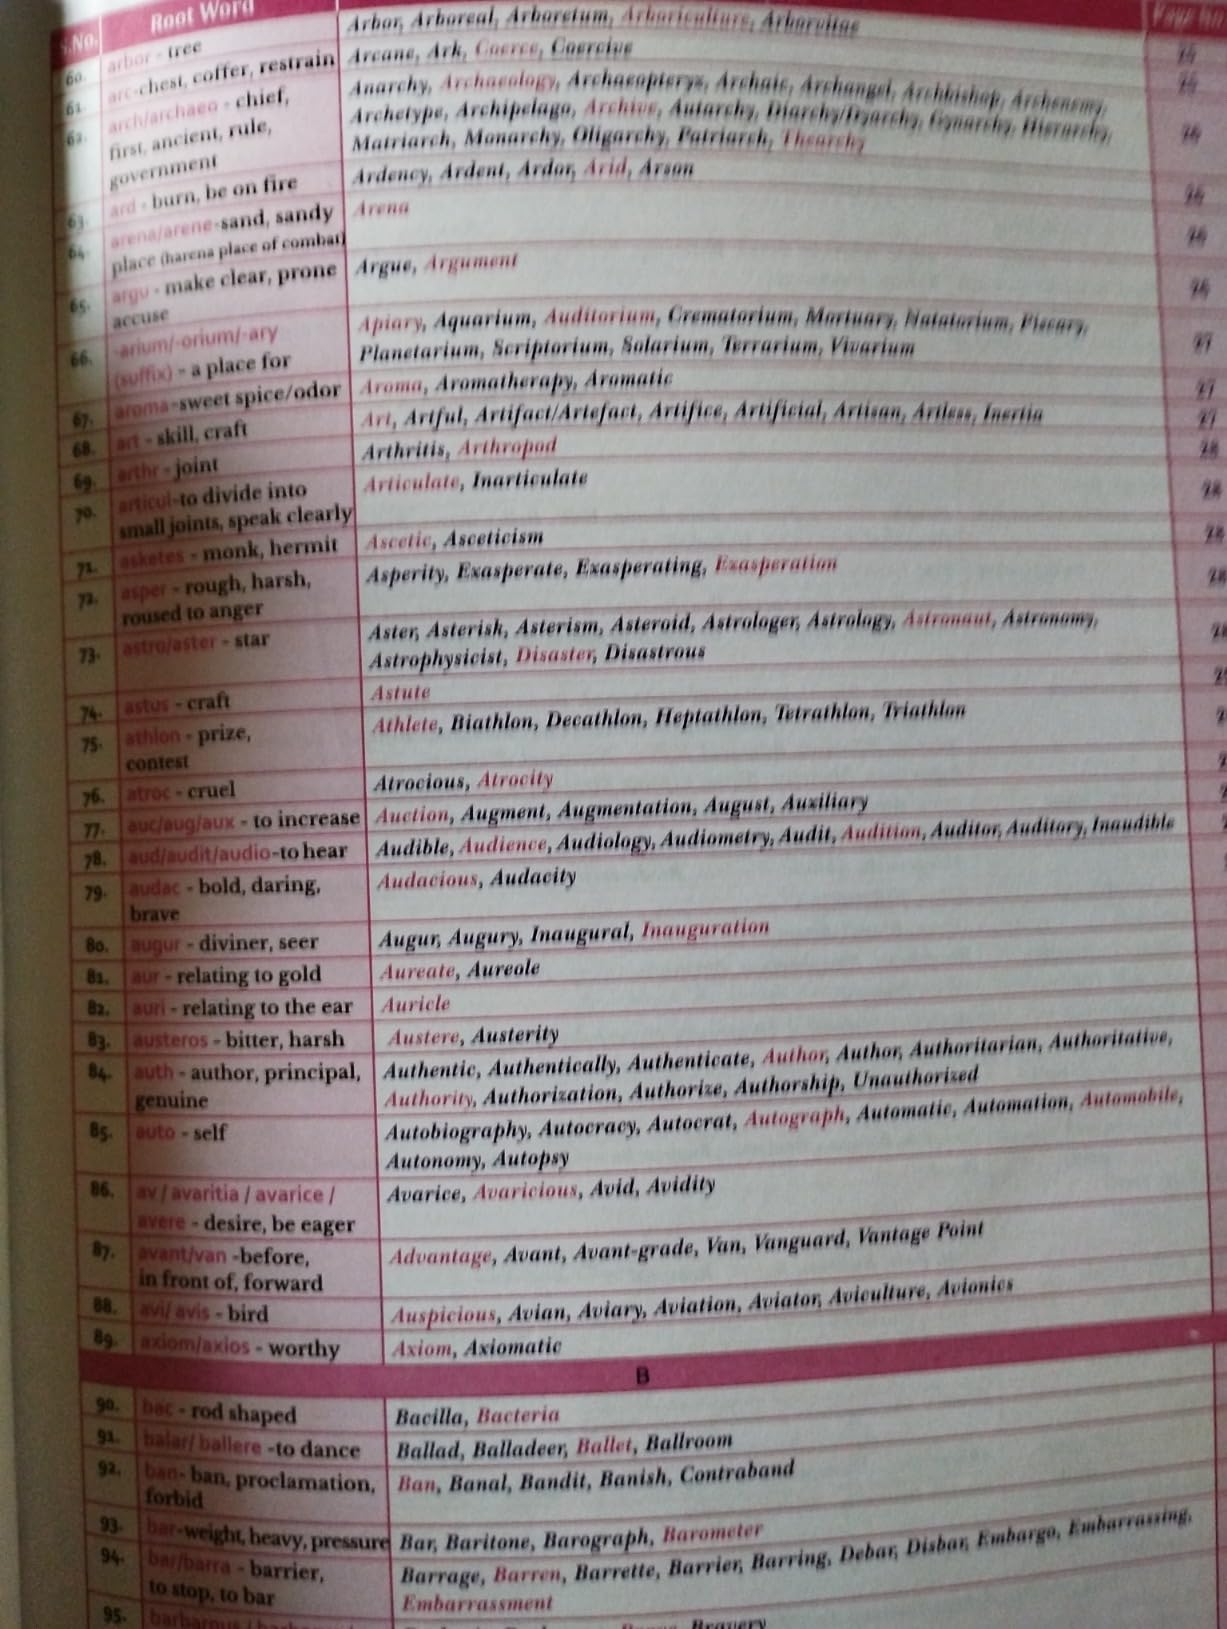 S.No. Root Word Page No.
60. arbor - tree Arbor, Arboreal, Arboretum, Arboriculture, Arborvitae 25
61. arc-chest, coffer, restrain Arcane, Ark, Coerce, Coercive
62. arch/archaeo - chief, Anarchy, Archaeology, Archaeopteryx, Archaic, Archangel, Archbishop, Archenemy,
first, ancient, rule, Archetype, Archipelago, Archive, Autarchy, Diarchy/Dyarchy, Gynarchy, Hierarchy,
government Matriarch, Monarchy, Oligarchy, Patriarch, Thearchy
63. ard - burn, be on fire Ardency, Ardent, Ardor, Arid, Arson
64. arena/arene-sand, sandy Arena
place (harena place of combat)
65. argu - make clear, prone Argue, Argument
accuse
66. -arium/-orium/-ary Apiary, Aquarium, Auditorium, Crematorium, Mortuary, Natatorium, Piscary,
(suffix) - a place for Planetarium, Scriptorium, Solarium, Terrarium, Vivarium 27
67. aroma-sweet spice/odor Aroma, Aromatherapy, Aromatic 27
68. art - skill, craft Art, Artful, Artifact/Artefact, Artifice, Artificial, Artisan, Artless, Inertia 27
69. arthr - joint Arthritis, Arthropod 28
70. articul-to divide into Articulate, Inarticulate 28
small joints, speak clearly
71. asketes - monk, hermit Ascetic, Asceticism 28
72. asper - rough, harsh, Asperity, Exasperate, Exasperating, Exasperation 28
roused to anger
73. astro/aster - star Aster, Asterisk, Asterism, Asteroid, Astrologer, Astrology, Astronaut, Astronomy,
Astrophysicist, Disaster, Disastrous
74. astus - craft Astute
75. athlon - prize, Athlete, Biathlon, Decathlon, Heptathlon, Tetrathlon, Triathlon
contest
76. atroc - cruel Atrocious, Atrocity
77. auc/aug/aux - to increase Auction, Augment, Augmentation, August, Auxiliary
78. aud/audit/audio-to hear Audible, Audience, Audiology, Audiometry, Audit, Audition, Auditor, Auditory, Inaudible
79. audac - bold, daring, Audacious, Audacity
brave
80. augur - diviner, seer Augur, Augury, Inaugural, Inauguration
81. aur - relating to gold Aureate, Aureole
82. auri - relating to the ear Auricle
83. austeros - bitter, harsh Austere, Austerity
84. auth - author, principal, Authentic, Authentically, Authenticate, Author, Author, Authoritarian, Authoritative,
genuine Authority, Authorization, Authorize, Authorship, Unauthorized
85. auto - self Autobiography, Autocracy, Autocrat, Autograph, Automatic, Automation, Automobile,
Autonomy, Autopsy
86. av / avaritia / avarice / Avarice, Avaricious, Avid, Avidity
avere - desire, be eager
87. avant/van -before, Advantage, Avant, Avant-grade, Van, Vanguard, Vantage Point
in front of, forward
88. avi/ avis - bird Auspicious, Avian, Aviary, Aviation, Aviator, Aviculture, Avionics
89. axiom/axios - worthy Axiom, Axiomatic
B
90. bac - rod shaped Bacilla, Bacteria
91. balar/ ballere -to dance Ballad, Balladeer, Ballet, Ballroom
92. ban- ban, proclamation, Ban, Banal, Bandit, Banish, Contraband
forbid
93. bar-weight, heavy, pressure Bar, Baritone, Barograph, Barometer
94. bar/barra - barrier, Barrage, Barren, Barrette, Barrier, Barring, Debar, Disbar, Embargo, Embarrassing,
to stop, to bar Embarrassment
95. Bravery